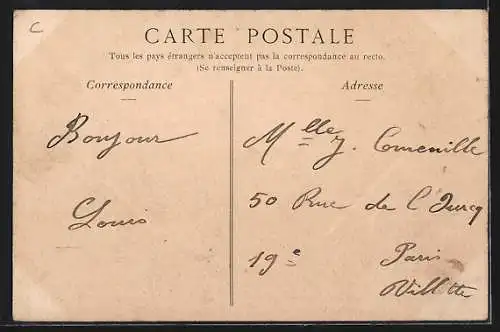 C
CARTE POSTALE
Tous les pays étrangers n'acceptent pas la correspondance au recto.
(Se renseigner à la Poste).
Correspondance
Adresse
Bonjour
Louis
Mlle J. Comenille
50 Rue de l'Ourcq
19e Paris
Villette